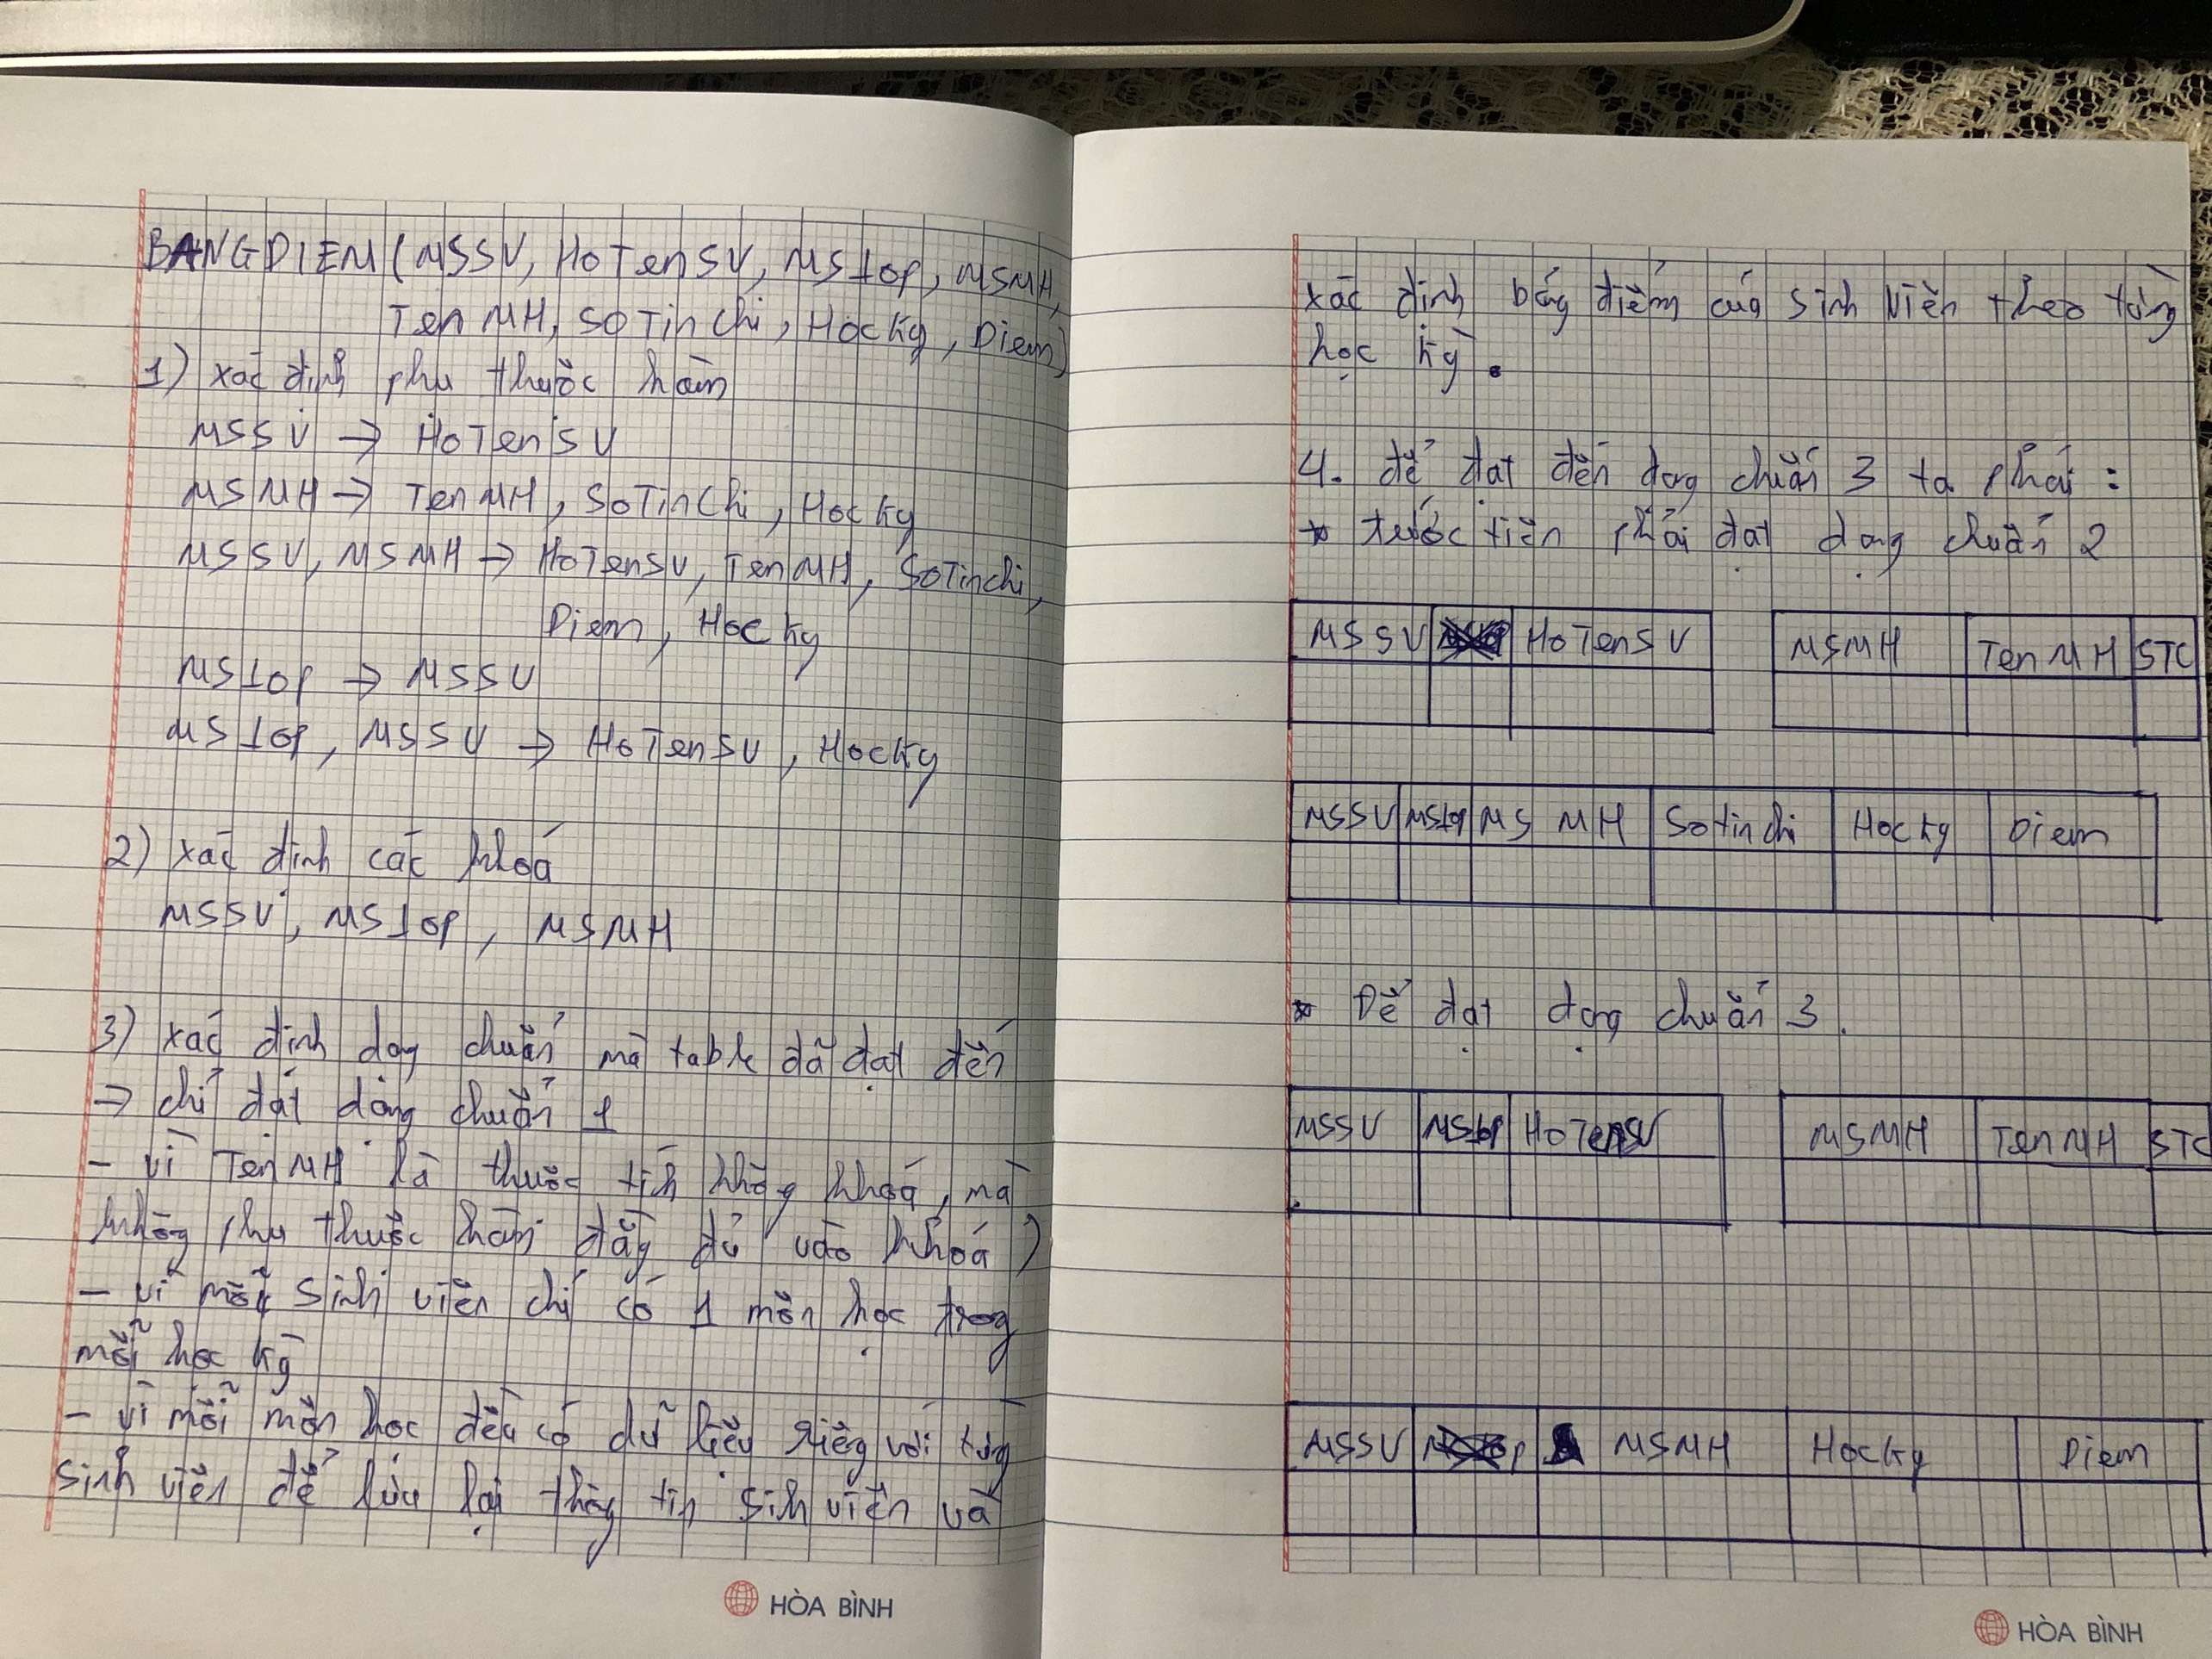 BANGDIEM (MSSV, HoTenSV, MSLop, MSMH,
TenMH, SoTinChi, HocKy, Diem)
1) xác định phụ thuộc hàm
MSSV → HoTenSV
MSMH → TenMH, SoTinChi, HocKy
MSSV, MSMH → HoTenSV, TenMH, SoTinchi,
Diem, HocKy
MSLop → MSSV
MSLop, MSSV → HoTenSV, HocKy
2) xác định các khoá
MSSV, MSLop, MSMH
3) xác định dạng chuẩn mà table đã đạt đến
→ chỉ đạt dạng chuẩn 1
- vì TenMH là thuộc tính không khoá, mà
không phụ thuộc hàm đầy đủ vào khoá)
- vì mỗi sinh viên chỉ có 1 môn học trong
mỗi học kỳ
- vì mỗi môn học đều có dữ liệu riêng với từng
sinh viên để lưu lại thông tin sinh viên và
HÒA BÌNH
xác định bảng điểm của sinh viên theo từng
học kỳ.
4. để đạt đến dạng chuẩn 3 ta phải :
* trước tiên phải đạt dạng chuẩn 2
MSSV HoTenSV MSMH TenMH STC
MSSV MSLop MSMH Sotinchi Hocky Diem
* Để đạt dạng chuẩn 3.
MSSV MSLop HoTenSV MSMH TenMH STC
MSSV MSMH Hocky Diem
HÒA BÌNH